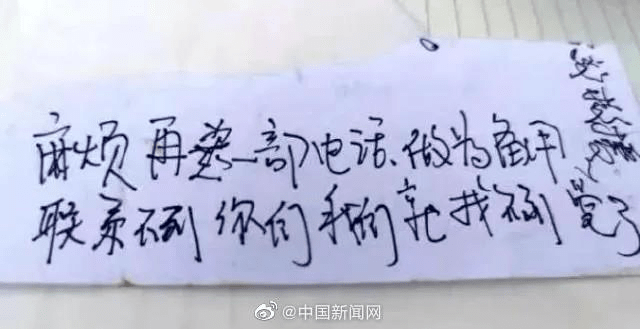 麻烦再装一部电话、做为备用
联系不到你们我们就找不到党了
@中国新闻网